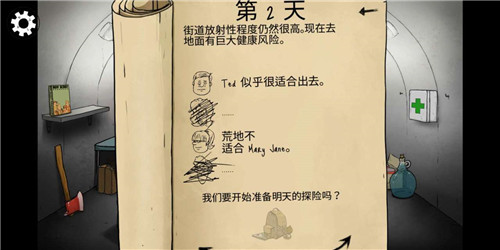 第 2 天
街道放射性程度仍然很高。现在去
地面有巨大健康风险。
Ted 似乎很适合出去。
......
荒地不
适合 Mary Jane。
......
我们要开始准备明天的探险吗？